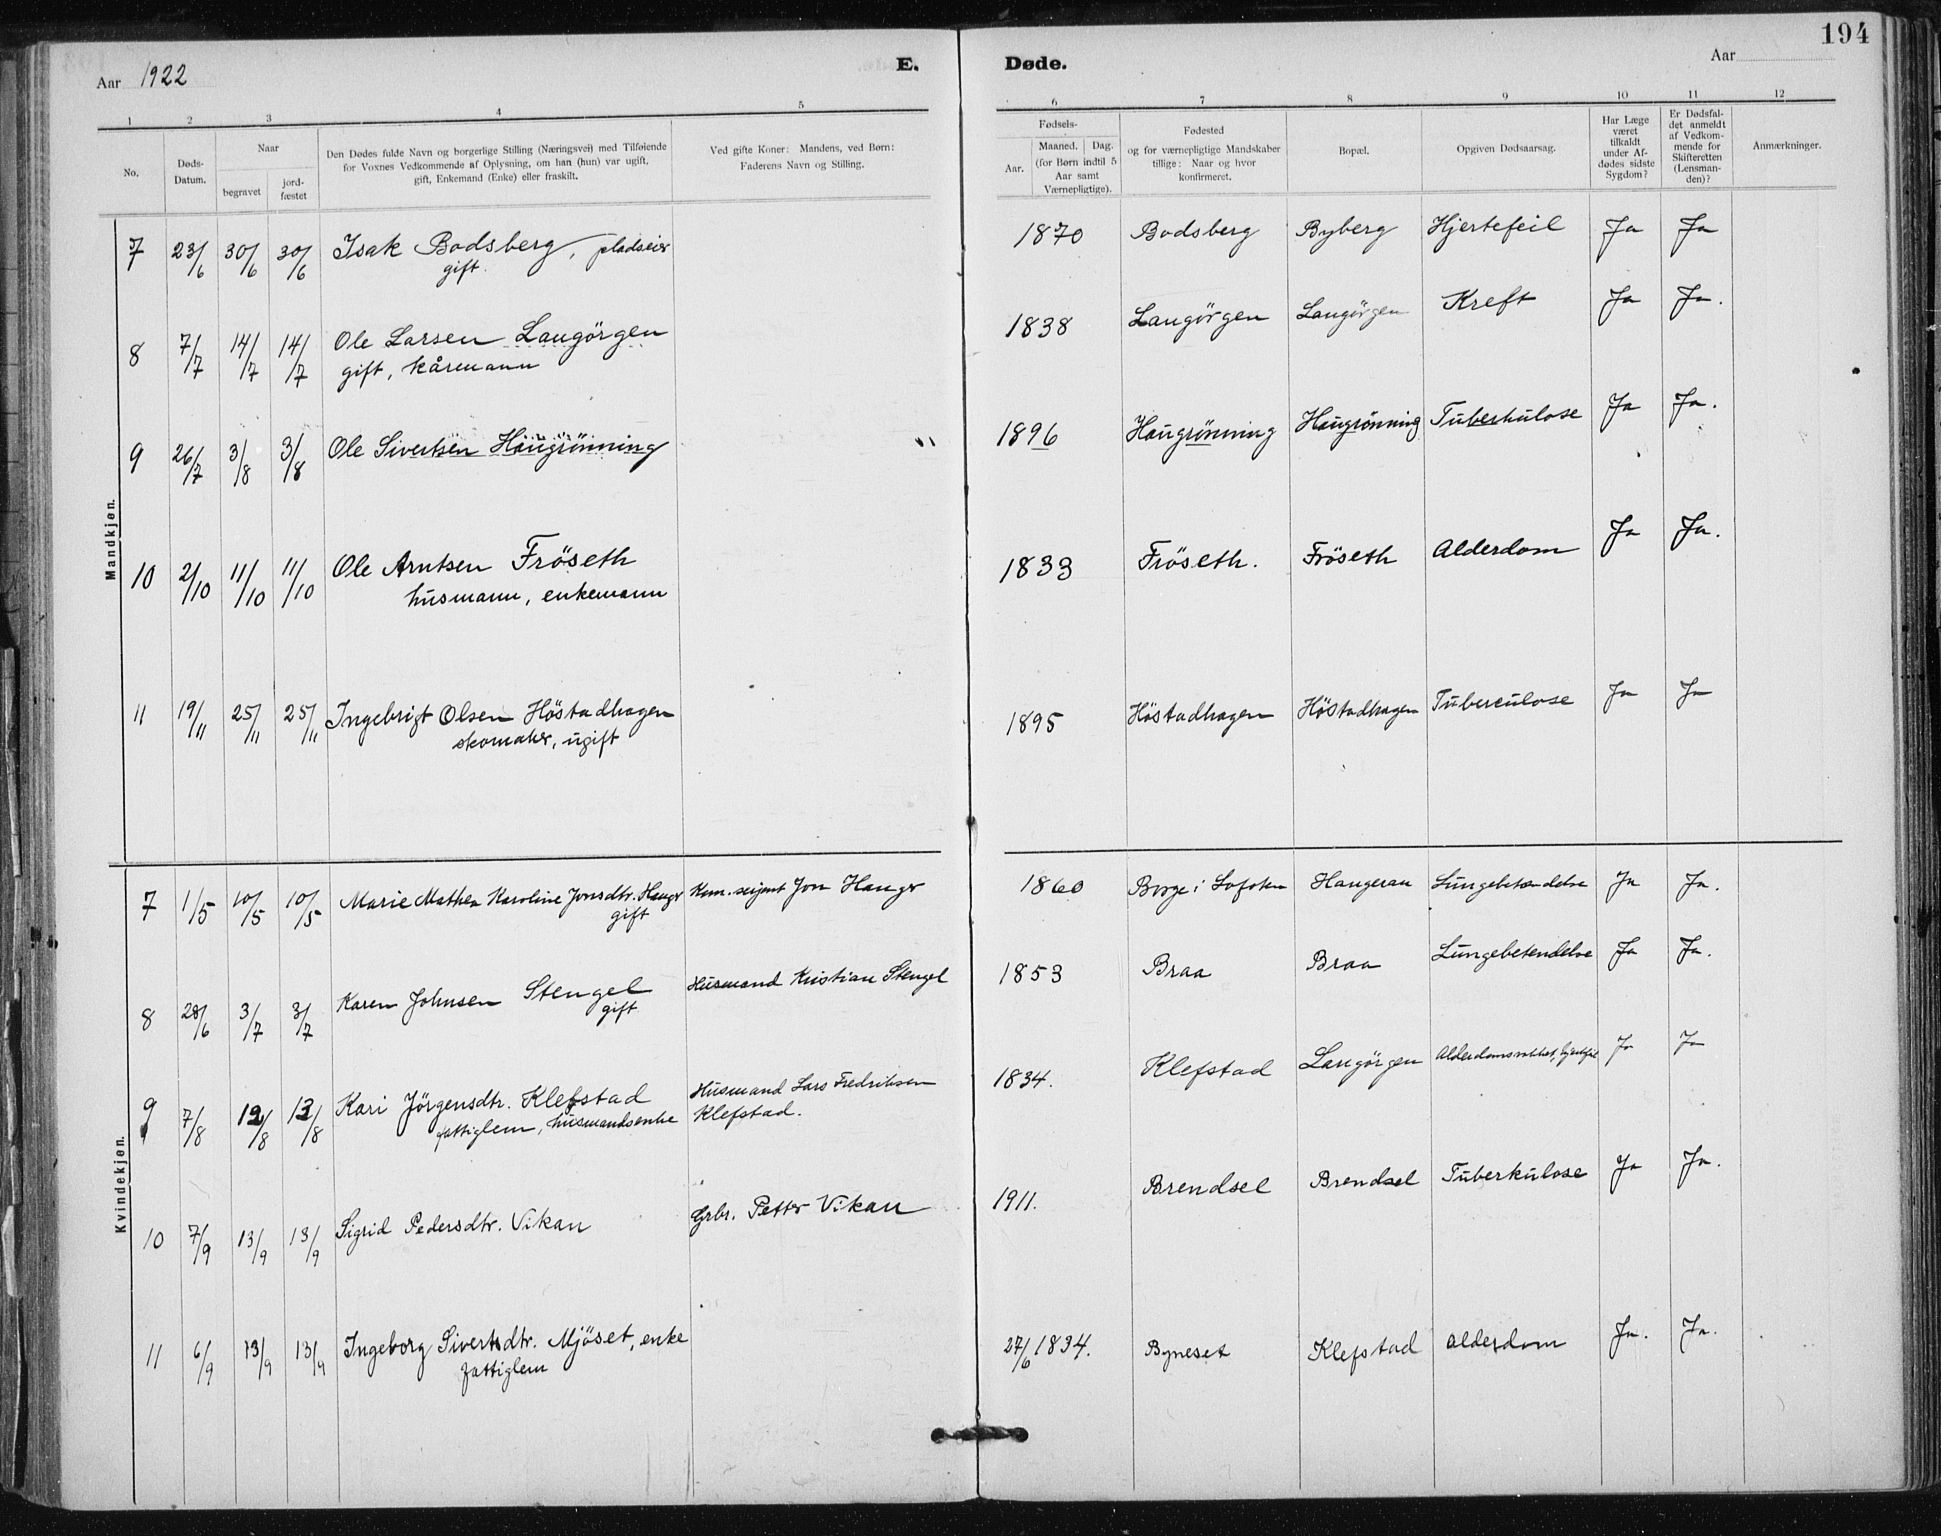 194
Aar 1922
E. Døde.
Aar
1 2 3 4 5 6 7 8 9 10 11 12
No.
Døds-
Datum.
Naar
begravet
jord-
fæstet
Den Dødes fulde Navn og borgerlige Stilling (Næringsvei) med Tilføiende
for Voxnes Vedkommende af Oplysning, om han (hun) var ugift,
gift, Enkemand (Enke) eller fraskilt.
Ved gifte Koner: Mandens, ved Børn:
Faderens Navn og Stilling.
Fødsels-
Aar.
Maaned. Dag.
(for Børn indtil 5
Aar samt
Værnepligtige).
Fødested
og for værnepligtige Mandskaber
tillige: Naar og hvor
konfirmeret.
Bopæl.
Opgiven Dødsaarsag.
Har Læge
været
tilkaldt
under Af-
dødes sidste
Sygdom?
Er Dødsfal-
det anmeldt
af Vedkom-
mende for
Skifteretten
(Lensman-
den)?
Anmærkninger.
Mandkjøn.
7 23/6 30/6 30/6 Isak Bodsberg, pladseier 1870 Bodsberg Byberg Hjertefeil Ja Ja
gift.
8 7/7 14/7 14/7 Ole Larsen Langörgen 1838 Langörgen Langörgen Kreft Ja Ja.
gift, kårmann
9 26/7 3/8 3/8 Ole Sivertsen Haugrönning 1896 Haugrönning Haugrönning Tuberkulose Ja Ja.
10 2/10 11/10 11/10 Ole Arntsen Fröseth 1833 Fröseth. Fröseth Alderdom Ja Ja.
husmann, enkemann
11 19/11 25/11 25/11 Ingebrigt Olsen Höstadhagen 1895 Höstadhagen Höstadhagen Tuberculose Ja Ja
skomaker, ugift
Kvindekjøn.
7 1/5 10/5 10/5 Marie Mathea Karoline Jonsdtr. Hauger Kom. sergent Jon Hauger 1860 Borge i Lofoten Haugeran Lungebetændelse Ja Ja.
gift
8 28/6 3/7 3/7 Karen Johnsen Stengel Husmand Kristian Stengel 1853 Braa Braa Lungebetendelse Ja Ja.
gift
9 7/8 12/8 12/8 Kari Jörgensdtr. Klefstad Husmand Lars Fredriksen 1834. Klefstad Langörgen Ja Ja
fattiglem, husmandsenke Klefstad.
10 7/9 13/9 13/9 Sigrid Pedersdtr. Vikan Grbr. Petter Vikan 1911. Brendsel Brendsel Tuberkulose Ja Ja.
11 6/9 13/9 13/9 Ingeborg Sivertsdtr. Mjöset, enke 27/6 1834. Byneset Klefstad Alderdom Ja. Ja.
fattiglem